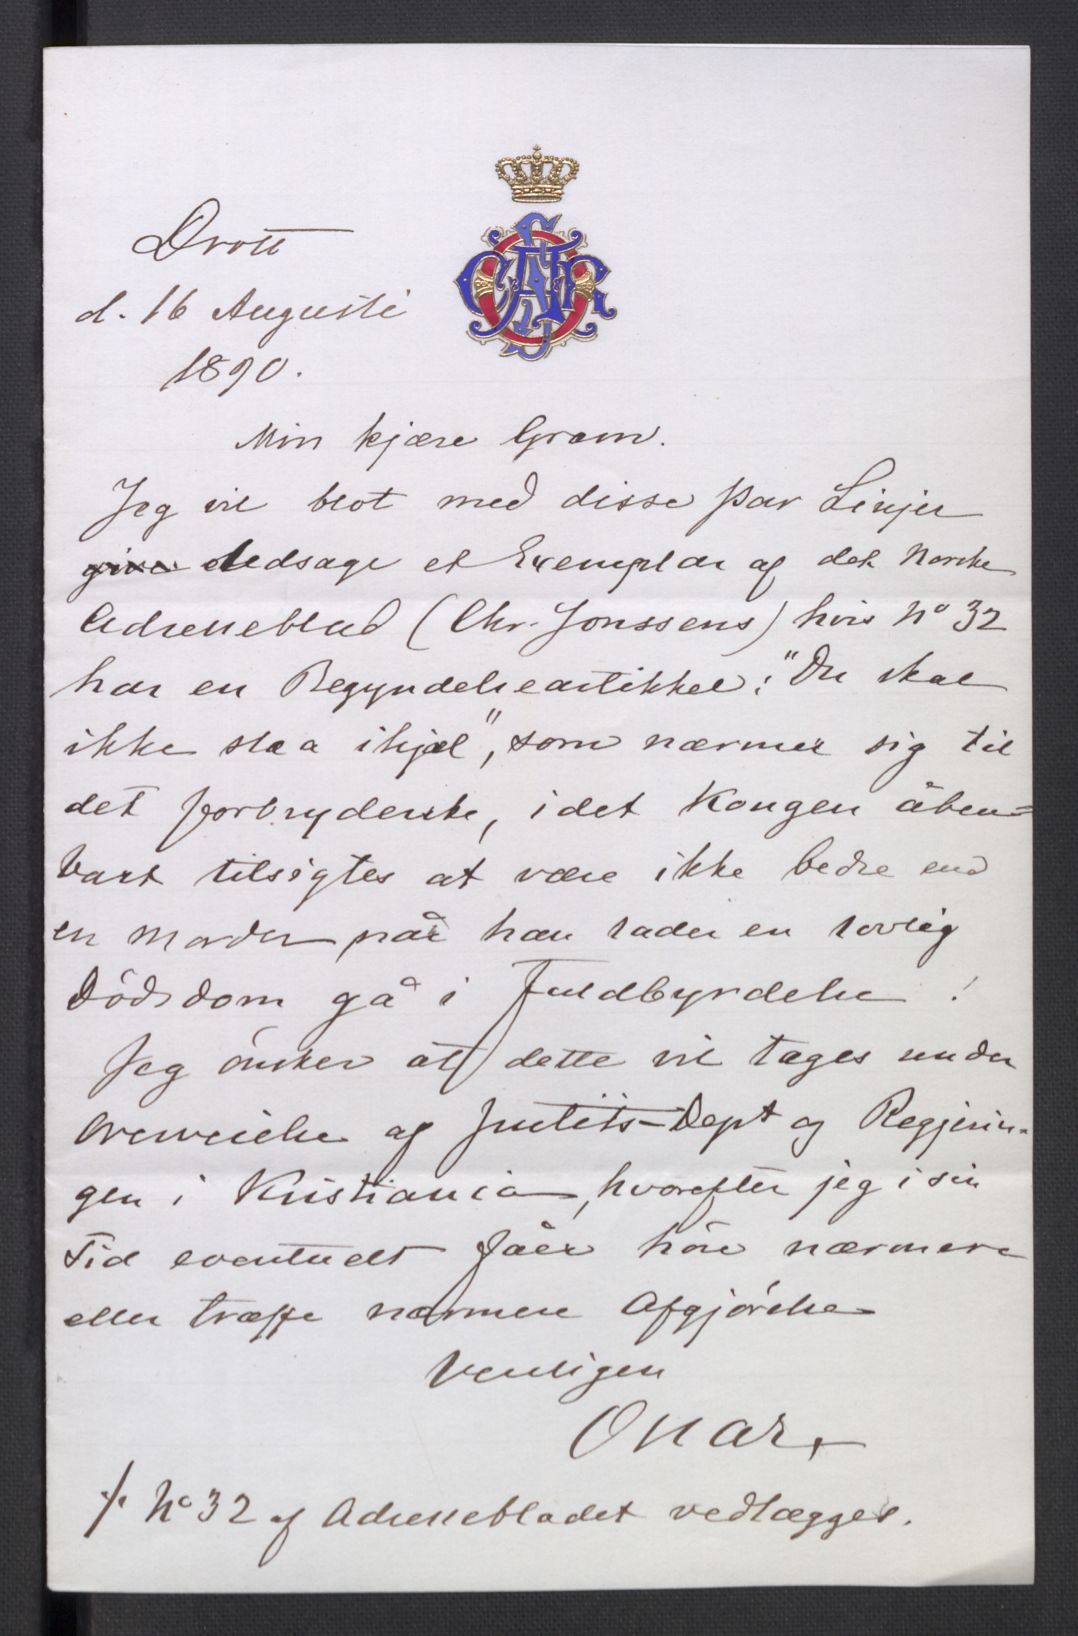 Drott
d. 16 Augusti
1890.
Min kjære Gram.
Jeg vil blot med disse par Linjer
give ledsage et Exemplar af det Norske
Adresseblad (Chr. Jonssens) hvis No 32
har en Begyndelseartikkel: "Du skal
ikke slaa ihjel", som nærmer sig til
det forbryderske, idet Kongen åben=
bart tilsigtes at være ikke bedre end
en Morder når han lader en lovlig
Dödsdom gå i Fuldbyrdelse!
Jeg önsker at dette vil tages under
Overveielse af Justits-Dept og Regjerin-
gen i Kristiania, hvorefter jeg i sin
Tid eventuelt fåer höre nærmere
eller træffe nærmere Afgjörelse
Venligen
Oscar
⁒ No 32 af Adressebladet vedlægges.